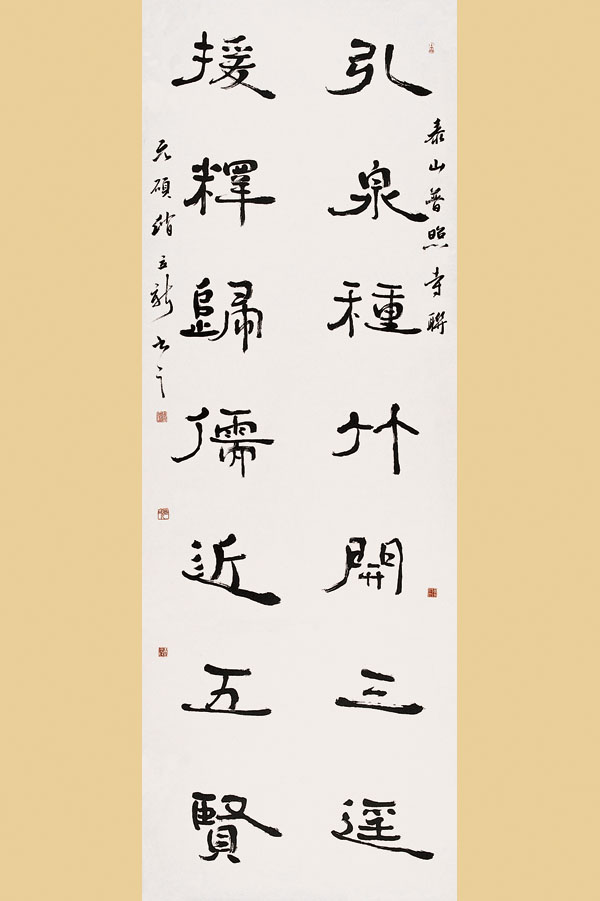 泰山普照寺聯
引泉種竹開三逕
援釋歸儒近五賢
碩 立新书